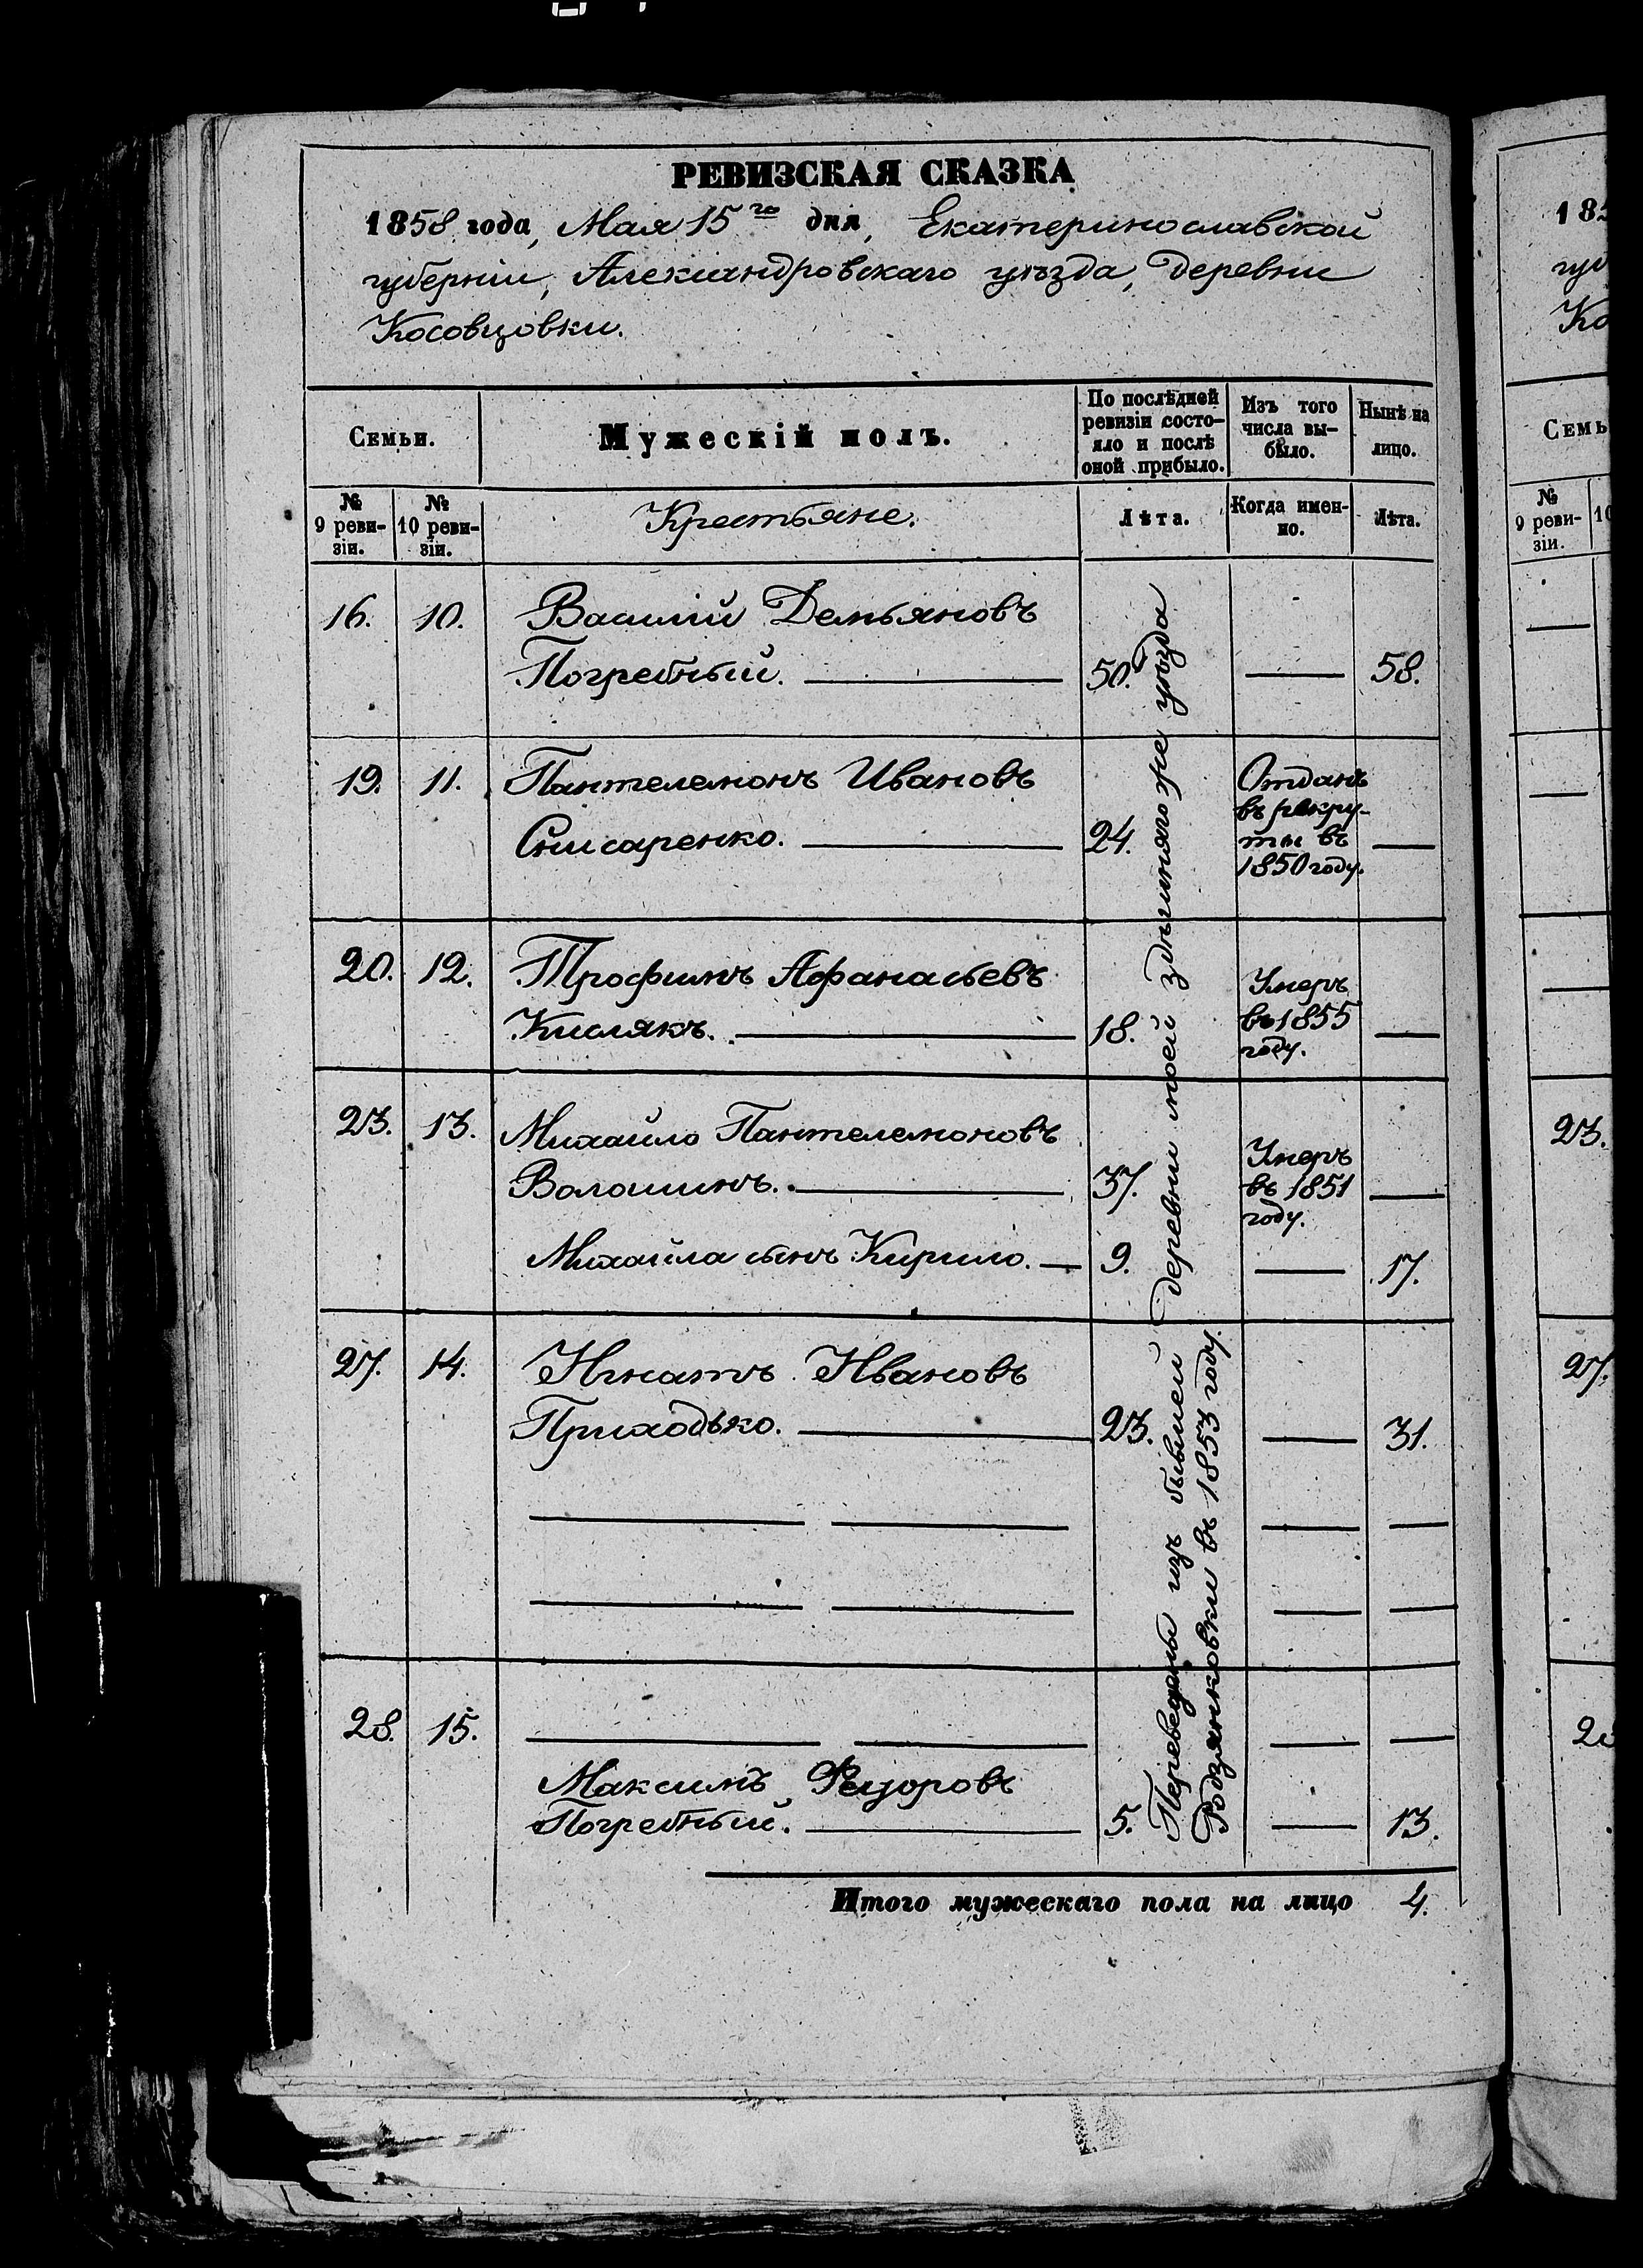 РЕВИЗСКАЯ СКАЗКА
1858 года, Мая 15го дня, Екатеринославской
губерніи, Александровскаго уѣзда, деревни
Косовцовки.
Семьи.
Мужескій полъ.
По послѣдней
ревизіи состо-
яло и послѣ
оной прибыло.
Изъ того
числа вы-
было.
Нынѣ на
лицо.
№
9 реви-
зіи.
№
10 реви-
зіи.
Крестьяне.
Лѣта.
Когда имен-
но.
Лѣта.
16. 10. Василій Демьяновъ
Погребный. 50. 58.
19. 11. Пантелемонъ Ивановъ
Снисаренко. 24.
Отданъ
въ рекру-
ты въ
1850 году.
20. 12. Трофимъ Афанасьевъ
Кислякъ. 18.
Умеръ
въ 1855
году.
23. 13. Михайло Пантелемоновъ
Волошинъ. 37.
Умеръ
въ 1851
году.
Михайла сынъ Кирило. 9. 17.
27. 14. Игнатъ Ивановъ
Приходько. 23. 31.
28. 15.
Максимъ Федоровъ
Погребный. 5. 13.
Переведены изъ бывшей деревни моей здѣшняго же уѣзда
Родзянковки въ 1853 году.
Итого мужескаго пола на лицо 4.
185
губ
Ко
Семь
№
9 реви-
зіи.
10
23.
27.
2